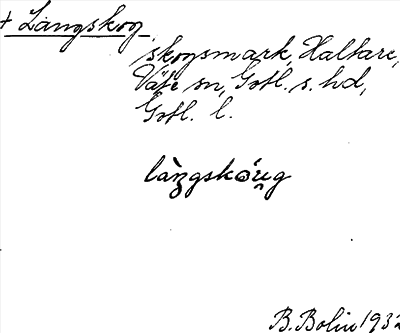 + Långskog
skogsmark, Halfare,
Väte sn, Gotl. s. hd,
Gotl. l.
làngskóug
B. Bolin 1932